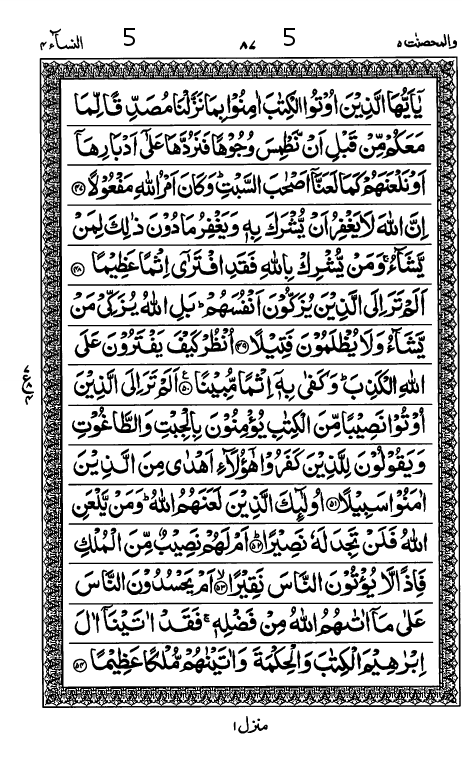 والمحصنت ٥ 5 ٨٧ 5 النسآء ٤
يٰۤاَيُّهَا الَّذِيْنَ اُوْتُوا الْكِتٰبَ اٰمِنُوْا بِمَا نَزَّلْنَا مُصَدِّقًا لِّمَا
مَعَكُمْ مِّنْ قَبْلِ اَنْ نَّطْمِسَ وُجُوْهًا فَنَرُدَّهَا عَلٰۤى اَدْبَارِهَاۤ
اَوْ نَلْعَنَهُمْ كَمَا لَعَنَّاۤ اَصْحٰبَ السَّبْتِؕ وَكَانَ اَمْرُ اللّٰهِ مَفْعُوْلًا ﴿٤٧﴾
اِنَّ اللّٰهَ لَا يَغْفِرُ اَنْ يُّشْرَكَ بِهٖ وَيَغْفِرُ مَا دُوْنَ ذٰلِكَ لِمَنْ
يَّشَآءُۚ وَمَنْ يُّشْرِكْ بِاللّٰهِ فَقَدِ افْتَرٰۤى اِثْمًا عَظِيْمًا ﴿٤٨﴾
اَلَمْ تَرَ اِلَى الَّذِيْنَ يُزَكُّوْنَ اَنْفُسَهُمْؕ بَلِ اللّٰهُ يُزَكِّيْ مَنْ
يَّشَآءُ وَلَا يُظْلَمُوْنَ فَتِيْلًا ﴿٤٩﴾ اُنْظُرْ كَيْفَ يَفْتَرُوْنَ عَلَى
اللّٰهِ الْكَذِبَؕ وَكَفٰى بِهٖۤ اِثْمًا مُّبِيْنًا ﴿٥٠﴾ اَلَمْ تَرَ اِلَى الَّذِيْنَ
اُوْتُوْا نَصِيْبًا مِّنَ الْكِتٰبِ يُؤْمِنُوْنَ بِالْجِبْتِ وَالطَّاغُوْتِ
وَيَقُوْلُوْنَ لِلَّذِيْنَ كَفَرُوْا هٰۤؤُلَآءِ اَهْدٰى مِنَ الَّذِيْنَ
اٰمَنُوْا سَبِيْلًا ﴿٥١﴾ اُولٰٓئِكَ الَّذِيْنَ لَعَنَهُمُ اللّٰهُؕ وَمَنْ يَّلْعَنِ
اللّٰهُ فَلَنْ تَجِدَ لَهٗ نَصِيْرًا ﴿٥٢﴾ اَمْ لَهُمْ نَصِيْبٌ مِّنَ الْمُلْكِ
فَاِذًا لَّا يُؤْتُوْنَ النَّاسَ نَقِيْرًا ﴿٥٣﴾ اَمْ يَحْسُدُوْنَ النَّاسَ
عَلٰى مَاۤ اٰتٰىهُمُ اللّٰهُ مِنْ فَضْلِهٖۚ فَقَدْ اٰتَيْنَاۤ اٰلَ
اِبْرٰهِيْمَ الْكِتٰبَ وَالْحِكْمَةَ وَاٰتَيْنٰهُمْ مُّلْكًا عَظِيْمًا ﴿٥٤﴾
منزل ١